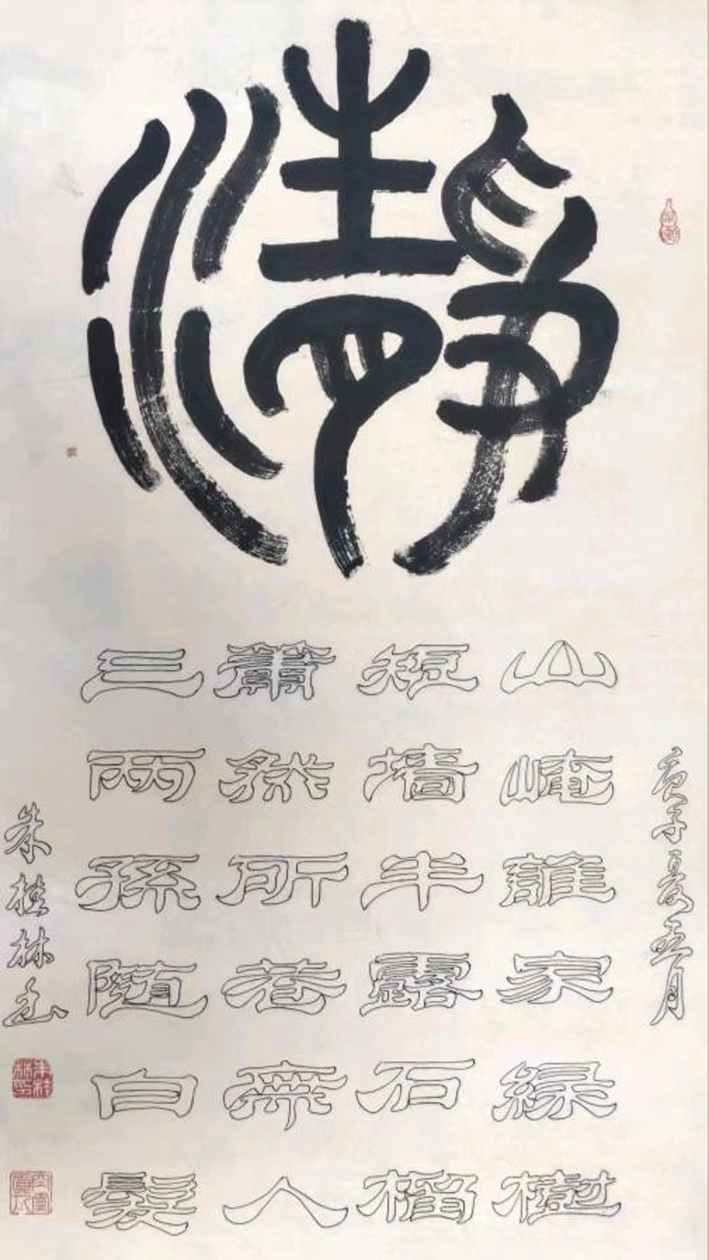 瀞
庚子夏五月
山崦誰家緑樹
短墙半露石榴
蕭然所巷無人
三兩孫隨白髮
朱桂林書